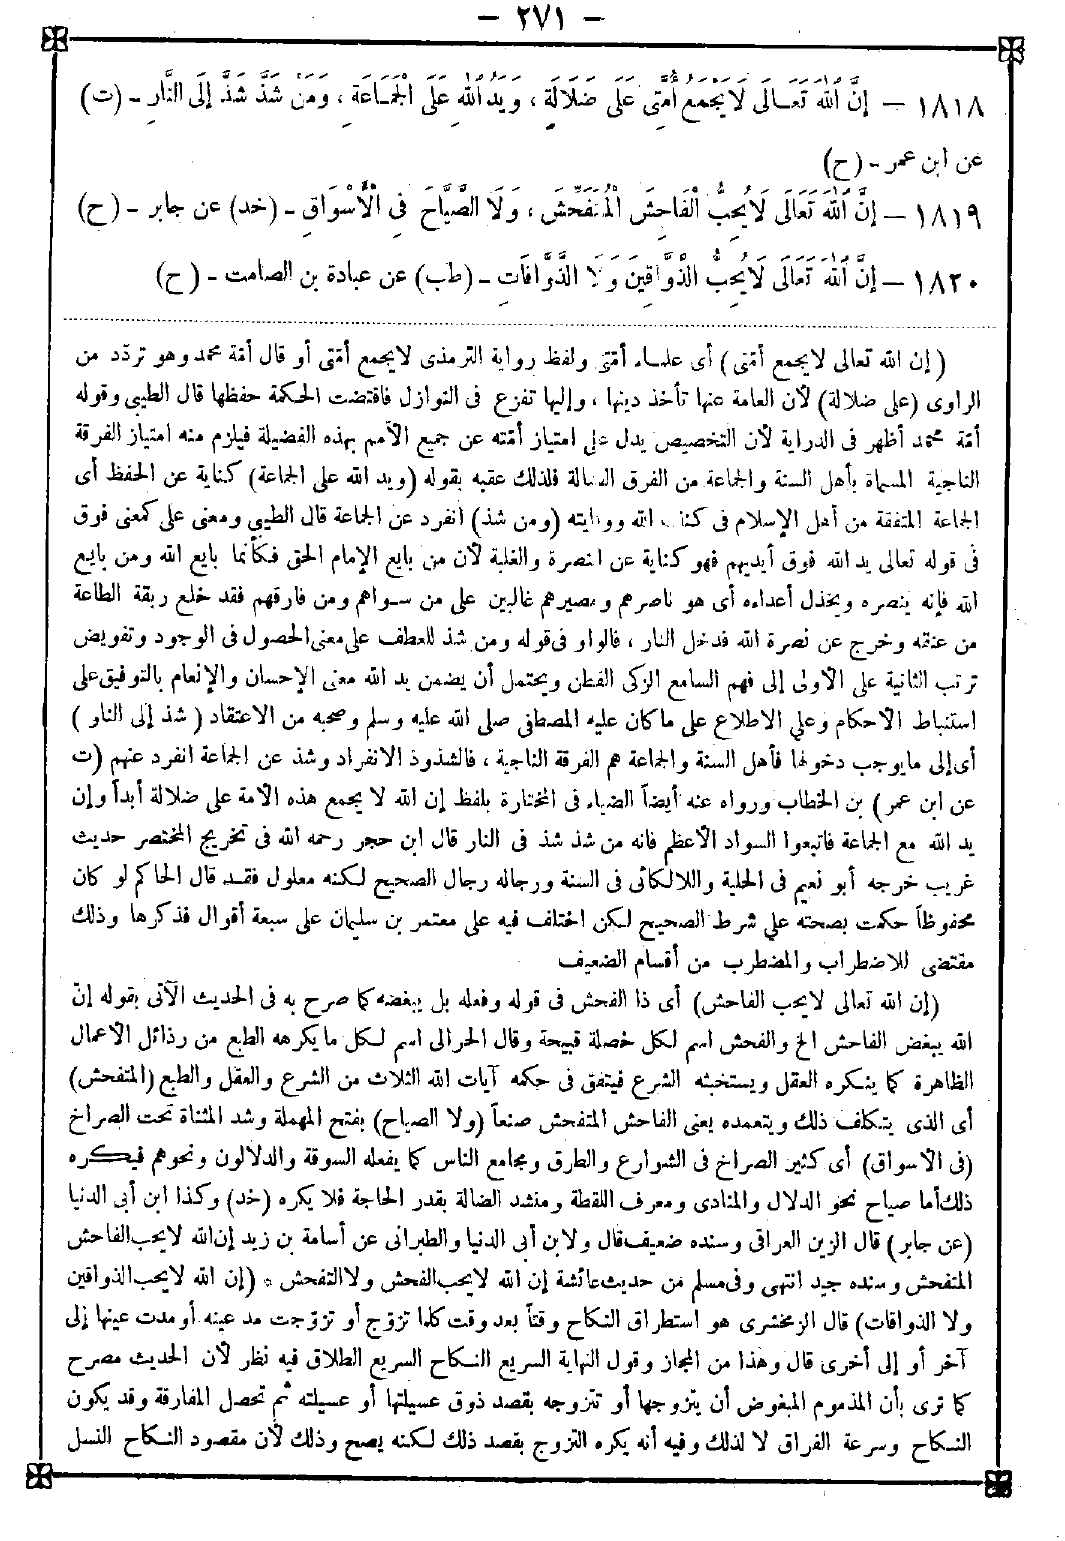 - ٢٧١ -
١٨١٨ – إِنَّ اللهَ تَعَالَى لَا يَجْمَعُ أُمَّتِي عَلَى ضَلَالَةٍ ، وَيَدُ اللهِ عَلَى الْجَمَاعَةِ ، وَمَنْ شَذَّ شَذَّ إِلَى النَّارِ - (ت)
عن ابن عمر - (ح)
١٨١٩ – إِنَّ اللهَ تَعَالَى لَا يُحِبُّ الْفَاحِشَ الْمُتَفَحِّشَ ، وَلَا الصَّيَّاحَ فِي الْأَسْوَاقِ - (خد) عن جابر - (ح)
١٨٢٠ – إِنَّ اللهَ تَعَالَى لَا يُحِبُّ الذَّوَّاقِينَ وَلَا الذَّوَّاقَاتِ - (طب) عن عبادة بن الصامت - (ح)
(إن الله تعالى لا يجمع أمتى) أى علماء أمتى ولفظ رواية الترمذى لا يجمع أمتى أو قال أمة محمد وهو تردّد من
الراوى (على ضلالة) لأن العامة عنها تأخذ دينها ، وإليها تفزع فى النوازل فاقتضت الحكمة حفظها قال الطيبي وقوله
أمة محمد أظهر فى الدراية لأن التخصيص يدل على امتياز أمته عن جميع الأمم بهذه الفضيلة فيلزم منه امتياز الفرقة
الناجية المسماة بأهل السنة والجماعة من الفرق الضالة فلذلك عقبه بقوله (ويد الله على الجماعة) كناية عن الحفظ أى
الجماعة المتفقة من أهل الإسلام فى كنف الله ووقايته (ومن شذ) انفرد عن الجماعة قال الطيبي ومعنى على كمعنى فوق
فى قوله تعالى يد الله فوق أيديهم فهو كناية عن النصرة والغلبة لأن من بايع الإمام الحق فكأنما بايع الله ومن بايع
الله فإنه ينصره ويخذل أعداءه أى هو ناصرهم ومصيرهم غالبين على من سواهم ومن فارقهم فقد خلع ربقة الطاعة
من عنقه وخرج عن نصرة الله فدخل النار ، فالواو فى قوله ومن شذ للعطف على معنى الحصول فى الوجود وتفويض
ترتب الثانية على الأولى إلى فهم السامع الزكى الفطن ويحتمل أن يضمن يد الله معنى الإحسان والإنعام بالتوفيق على
استنباط الأحكام وعلى الاطلاع على ما كان عليه المصطفى صلى الله عليه وسلم وصحبه من الاعتقاد (شذ إلى النار)
أى إلى ما يوجب دخولها فأهل السنة والجماعة هم الفرقة الناجية ، فالشذوذ الانفراد وشذ عن الجماعة انفرد عنهم (ت
عن ابن عمر) بن الخطاب ورواه عنه أيضاً الضياء فى المختارة بلفظ إن الله لا يجمع هذه الأمة على ضلالة أبداً وإن
يد الله مع الجماعة فاتبعوا السواد الأعظم فانه من شذ شذ فى النار قال ابن حجر رحمه الله فى تخريج المختصر حديث
غريب خرجه أبو نعيم فى الحلية واللالكائى فى السنة ورجاله رجال الصحيح لكنه معلول فقد قال الحاكم لو كان
محفوظاً حكمت بصحته على شرط الصحيح لكن اختلف فيه على معتمر بن سليمان على سبعة أقوال فذكرها وذلك
مقتضى للاضطراب والمضطرب من أقسام الضعيف
(إن الله تعالى لا يحب الفاحش) أى ذا الفحش فى قوله وفعله بل يبغضه كما صرح به فى الحديث الآتى بقوله إنّ
الله يبغض الفاحش الخ والفحش اسم لكل خصلة قبيحة وقال الحرالى اسم لكل ما يكرهه الطبع من رذائل الأعمال
الظاهرة كما ينكره العقل ويستخبثه الشرع فيتفق فى حكمه آيات الله الثلاث من الشرع والعقل والطبع (المتفحش)
أى الذى يتكلف ذلك ويتعمده يعنى الفاحش المتفحش صنعاً (ولا الصياح) بفتح المهملة وشد المثناة تحت الصراخ
(فى الأسواق) أى كثير الصراخ فى الشوارع والطرق ومجامع الناس كما يفعله السوقة والدلالون ونحوهم فيكره
ذلك أما صياح نحو الدلال والمنادى ومعرف اللقطة ومنشد الضالة بقدر الحاجة فلا يكره (خد) وكذا ابن أبى الدنيا
(عن جابر) قال الزين العراقى وسنده ضعيف قال ولابن أبى الدنيا والطبرانى عن أسامة بن زيد إن الله لا يحب الفاحش
المتفحش وسنده جيد انتهى وفى مسلم من حديث عائشة إن الله لا يحب الفحش ولا التفحش * (إن الله لا يحب الذواقين
ولا الذواقات) قال الزمخشرى هو استطراق النكاح وقتاً بعد وقت كلما تزوّج أو تزوّجت مد عينه أو مدت عينها إلى
آخر أو إلى أخرى قال وهذا من المجاز وقول النهاية السريع النكاح السريع الطلاق فيه نظر لأن الحديث مصرح
كما ترى بأن المذموم المبغوض أن يتزوجها أو تتزوجه بقصد ذوق عسيلتها أو عسيلته ثم تحصل المفارقة وقد يكون
النكاح وسرعة الفراق لا لذلك وفيه أنه يكره التزوج بقصد ذلك لكنه يصح وذلك لأن مقصود النكاح النسل